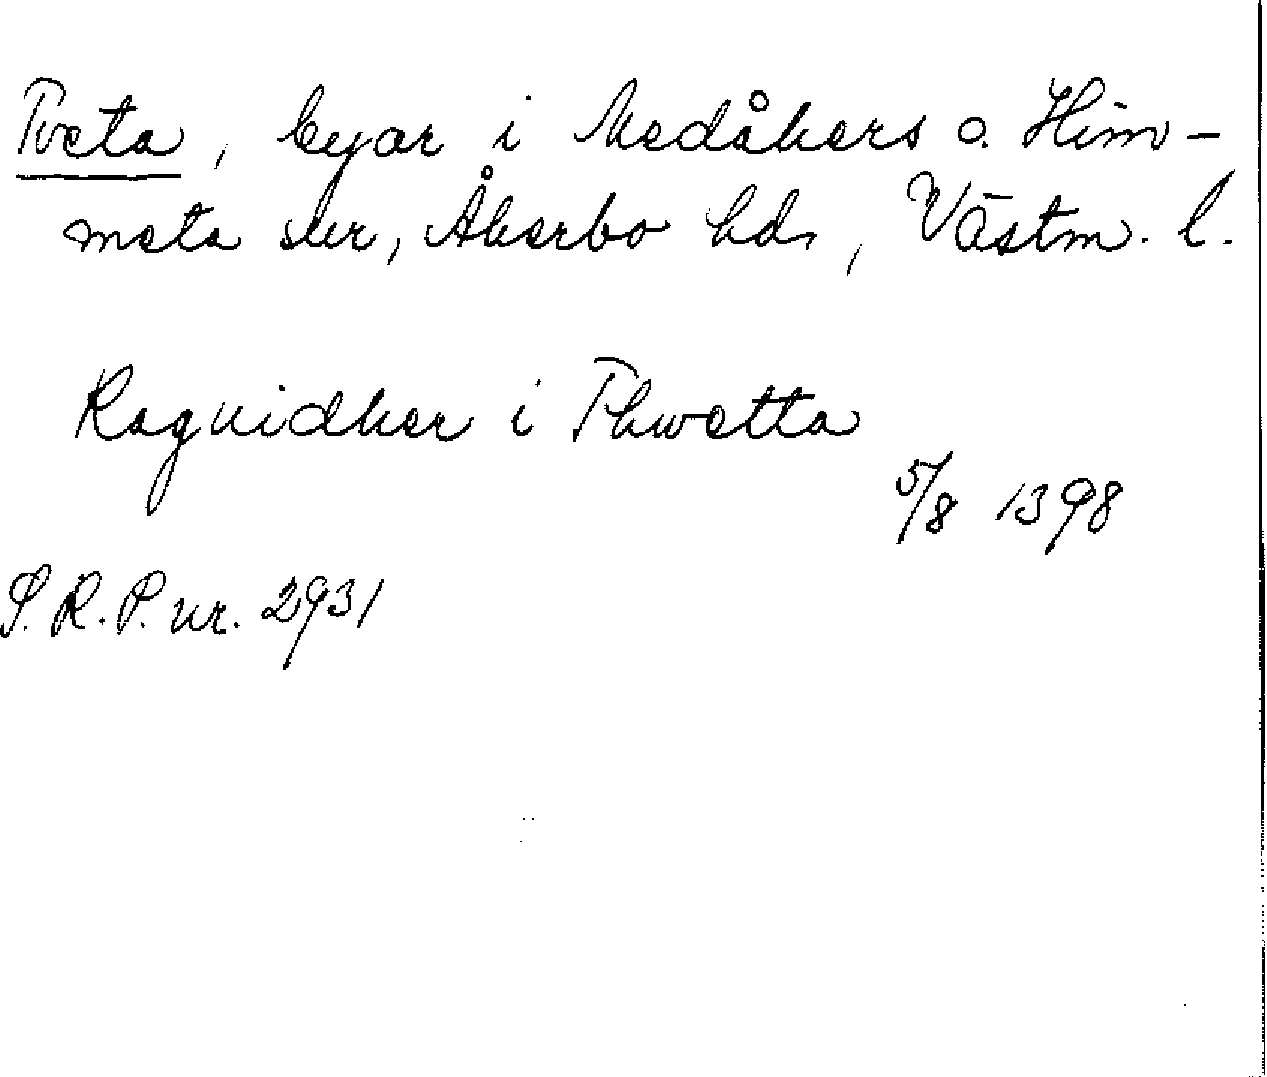 Tveta, byar i Medåkers o. Him-
meta skr, Åkerbo hd, Västm. l.
Ragvidher i Thwetta
5/8 1398
S.R.P. nr. 2931